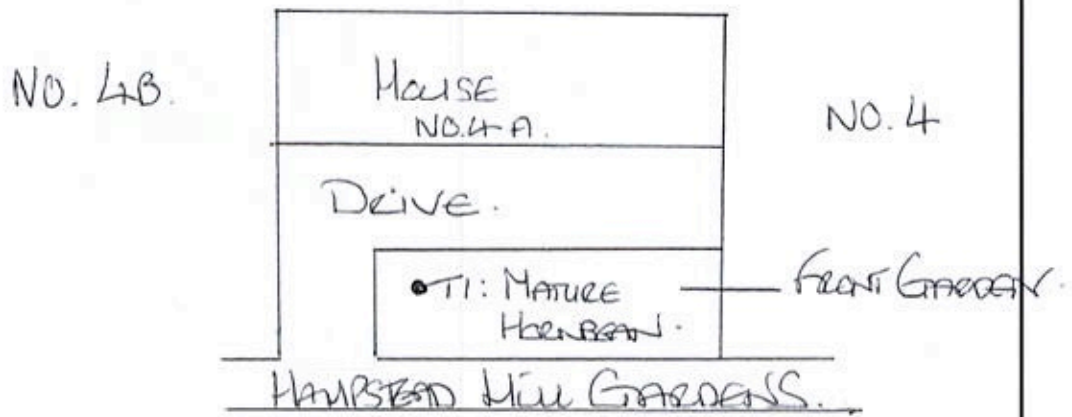 NO. 4B.
HOUSE
NO.4A.
NO. 4
DRIVE.
T1: MATURE
HORNBEAN.
FRONT GARDEN.
HAMPSTEAD HILL GARDENS.